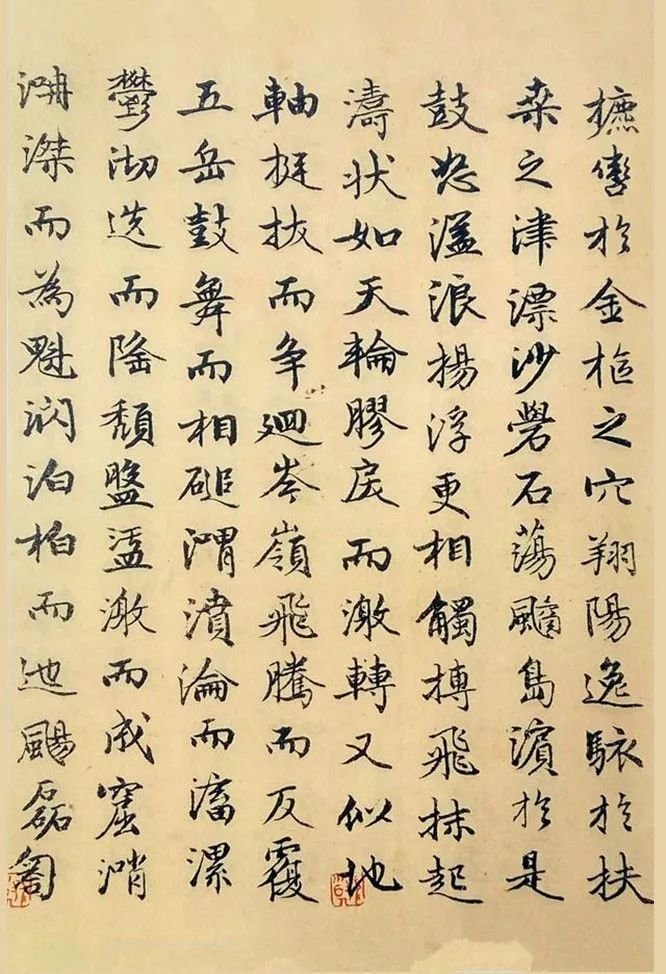 摭轡於金樞之穴翔陽逸駭於扶
桑之津漂沙礐石蕩䬑島濱於是
鼓怒溢浪揚浮更相觸搏飛沫起
濤状如天輪膠戾而激轉又似地
軸挺拔而争廻岑嶺飛騰而反覆
五岳鼓舞而相磓渭濆淪而滀漯
鬱沏迭而隆頹盤盓激而成窟消
淜滐而為魁㴸泊柏而迆颺磊匒